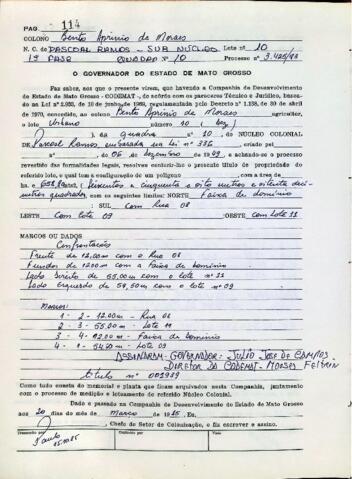 PAG. 114
COLONO Bento Aprinio de Moraes
N. C. de PASCOAL RAMOS - SUB NÚCLEO Lote nº 10
1ª FASE QUADRA Nº 10 Processo nº
O GOVERNADOR DO ESTADO DE MATO GROSSO
Faz saber, aos que a presente virem, que havendo a Companhia de Desenvolvimento
do Estado de Mato Grosso - CODEMAT - de acôrdo com os pareceres Técnico e Jurídico, baseado
na Lei nº 2.930, de 10 de junho de 1969, regulamentada pelo Decreto nº 1.138, de 30 de abril
de 1970, concedido ao colono Bento Aprinio de Moraes agricultor,
o lote Urbano número 10 ( Dez
) da quadra nº 10, do NÚCLEO COLONIAL
DE Pascoal Ramos criado pela Lei nº 336 criado pel
nº de 06 de Dezembro de 1949, e achando-se o processo
revestido das formalidades legais, resolveu conferir-lhe o presente título de propriedade do
referido lote, o qual tem a configuração de um polígono com a área de
ha. e 658,80m2, (Seiscentos e cinquenta e oito metros e oitenta deci-
metros quadrados, com os seguintes limites: NORTE Faixa de domínio
; SUL com Rua 08
LESTE com lote 09 ;OESTE com lote 11
MARCOS OU DADOS
Confrontações
Frente de 12,00m com a Rua 08
Fundos de 12,00m com a Faixa de Domínio
Lado direito de 55,00m com o lote nº 11
Lado esquerdo de 54,50m com o lote nº 09
Marcos:
1 - 2 - 12.00m - Rua 08
2 - 3 - 55,00m - Lote 11
3 - 4 - 12.00m - Faixa de Domínio
4 - 1 - 54.50m - Lote 09
ASSINARAM - GOVERNADOR - JULIO JOSÉ DE CAMPOS
DIRETOR DA CODEMAT - MOISES FELTRIN
título nº 001989
Como tudo consta do memorial e planta que ficam arquivados nesta Companhia, juntamente
com o processo de medição e loteamento do referido Núcleo Colonial.
Dado e passado na Companhia de Desenvolvimento do Estado de Mato Grosso
aos 20 dias do mês de março de 1985 Eu,
, Chefe do Setor de Colonização, o fiz escrever e assino.
Transcrito por
Conferido por
Visto